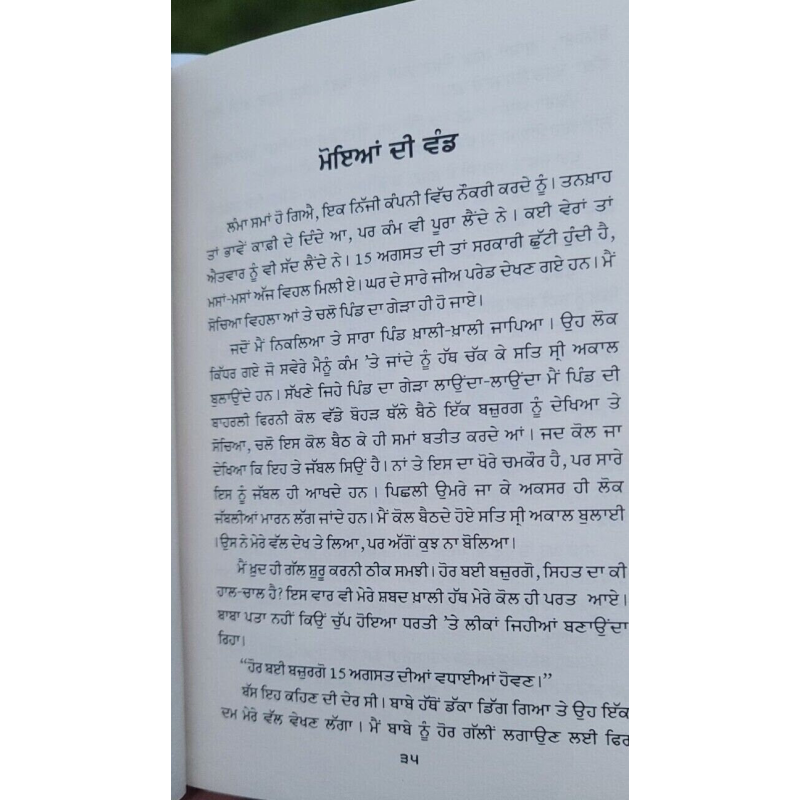 ਮੋਇਆਂ ਦੀ ਵੰਡ
ਲੰਮਾ ਸਮਾਂ ਹੋ ਗਿਐ, ਇਕ ਨਿੱਜੀ ਕੰਪਨੀ ਵਿੱਚ ਨੌਕਰੀ ਕਰਦੇ ਨੂੰ। ਤਨਖ਼ਾਹ
ਤਾਂ ਭਾਵੇਂ ਕਾਫੀ ਦੇ ਦਿੰਦੇ ਆ, ਪਰ ਕੰਮ ਵੀ ਪੂਰਾ ਲੈਂਦੇ ਨੇ। ਕਈ ਵੇਰਾਂ ਤਾਂ
ਐਤਵਾਰ ਨੂੰ ਵੀ ਸੱਦ ਲੈਂਦੇ ਨੇ। 15 ਅਗਸਤ ਦੀ ਤਾਂ ਸਰਕਾਰੀ ਛੁੱਟੀ ਹੁੰਦੀ ਹੈ,
ਮਸਾਂ-ਮਸਾਂ ਅੱਜ ਵਿਹਲ ਮਿਲੀ ਏ। ਘਰ ਦੇ ਸਾਰੇ ਜੀਅ ਪਰੇਡ ਦੇਖਣ ਗਏ ਹਨ। ਮੈਂ
ਸੋਚਿਆ ਵਿਹਲਾ ਆਂ ਤੇ ਚਲੋ ਪਿੰਡ ਦਾ ਗੇੜਾ ਹੀ ਹੋ ਜਾਏ।
ਜਦੋਂ ਮੈਂ ਨਿਕਲਿਆ ਤੇ ਸਾਰਾ ਪਿੰਡ ਖ਼ਾਲੀ-ਖ਼ਾਲੀ ਜਾਪਿਆ। ਉਹ ਲੋਕ
ਕਿੱਧਰ ਗਏ ਜੋ ਸਵੇਰੇ ਮੈਨੂੰ ਕੰਮ 'ਤੇ ਜਾਂਦੇ ਨੂੰ ਹੱਥ ਚੱਕ ਕੇ ਸਤਿ ਸ੍ਰੀ ਅਕਾਲ
ਬੁਲਾਉਂਦੇ ਹਨ। ਸੱਖਣੇ ਜਿਹੇ ਪਿੰਡ ਦਾ ਗੇੜਾ ਲਾਉਂਦਾ-ਲਾਉਂਦਾ ਮੈਂ ਪਿੰਡ ਦੀ
ਬਾਹਰਲੀ ਫਿਰਨੀ ਕੋਲ ਵੱਡੇ ਬੋਹੜ ਥੱਲੇ ਬੈਠੇ ਇੱਕ ਬਜ਼ੁਰਗ ਨੂੰ ਦੇਖਿਆ ਤੇ
ਸੋਚਿਆ, ਚਲੋ ਇਸ ਕੋਲ ਬੈਠ ਕੇ ਹੀ ਸਮਾਂ ਬਤੀਤ ਕਰਦੇ ਆਂ। ਜਦ ਕੋਲ ਜਾ
ਦੇਖਿਆ ਕਿ ਇਹ ਤੇ ਜੱਬਲ ਸਿਉਂ ਹੈ। ਨਾਂ ਤੇ ਇਸ ਦਾ ਖੋਰੇ ਚਮਕੌਰ ਹੈ, ਪਰ ਸਾਰੇ
ਇਸ ਨੂੰ ਜੱਬਲ ਹੀ ਆਖਦੇ ਹਨ। ਪਿਛਲੀ ਉਮਰੇ ਜਾ ਕੇ ਅਕਸਰ ਹੀ ਲੋਕ
ਜੱਬਲੀਆਂ ਮਾਰਨ ਲੱਗ ਜਾਂਦੇ ਹਨ। ਮੈਂ ਕੋਲ ਬੈਠਦੇ ਹੋਏ ਸਤਿ ਸ੍ਰੀ ਅਕਾਲ ਬੁਲਾਈ
।ਉਸ ਨੇ ਮੇਰੇ ਵੱਲ ਦੇਖ ਤੇ ਲਿਆ, ਪਰ ਅੱਗੋਂ ਕੁਝ ਨਾ ਬੋਲਿਆ।
ਮੈਂ ਖ਼ੁਦ ਹੀ ਗੱਲ ਸ਼ੁਰੂ ਕਰਨੀ ਠੀਕ ਸਮਝੀ। ਹੋਰ ਬਈ ਬਜ਼ੁਰਗੋ, ਸਿਹਤ ਦਾ ਕੀ
ਹਾਲ-ਚਾਲ ਹੈ? ਇਸ ਵਾਰ ਵੀ ਮੇਰੇ ਸ਼ਬਦ ਖ਼ਾਲੀ ਹੱਥ ਮੇਰੇ ਕੋਲ ਹੀ ਪਰਤ ਆਏ।
ਬਾਬਾ ਪਤਾ ਨਹੀਂ ਕਿਉਂ ਚੁੱਪ ਹੋਇਆ ਧਰਤੀ 'ਤੇ ਲੀਕਾਂ ਜਿਹੀਆਂ ਬਣਾਉਂਦਾ
ਰਿਹਾ।
"ਹੋਰ ਬਈ ਬਜ਼ੁਰਗੋ 15 ਅਗਸਤ ਦੀਆਂ ਵਧਾਈਆਂ ਹੋਵਣ।"
ਬੱਸ ਇਹ ਕਹਿਣ ਦੀ ਦੇਰ ਸੀ। ਬਾਬੇ ਹੱਥੋਂ ਡੱਕਾ ਡਿੱਗ ਗਿਆ ਤੇ ਉਹ ਇੱਕ
ਦਮ ਮੇਰੇ ਵੱਲ ਵੇਖਣ ਲੱਗਾ। ਮੈਂ ਬਾਬੇ ਨੂੰ ਹੋਰ ਗੱਲੀਂ ਲਗਾਉਣ ਲਈ ਫਿਰ
੩੫